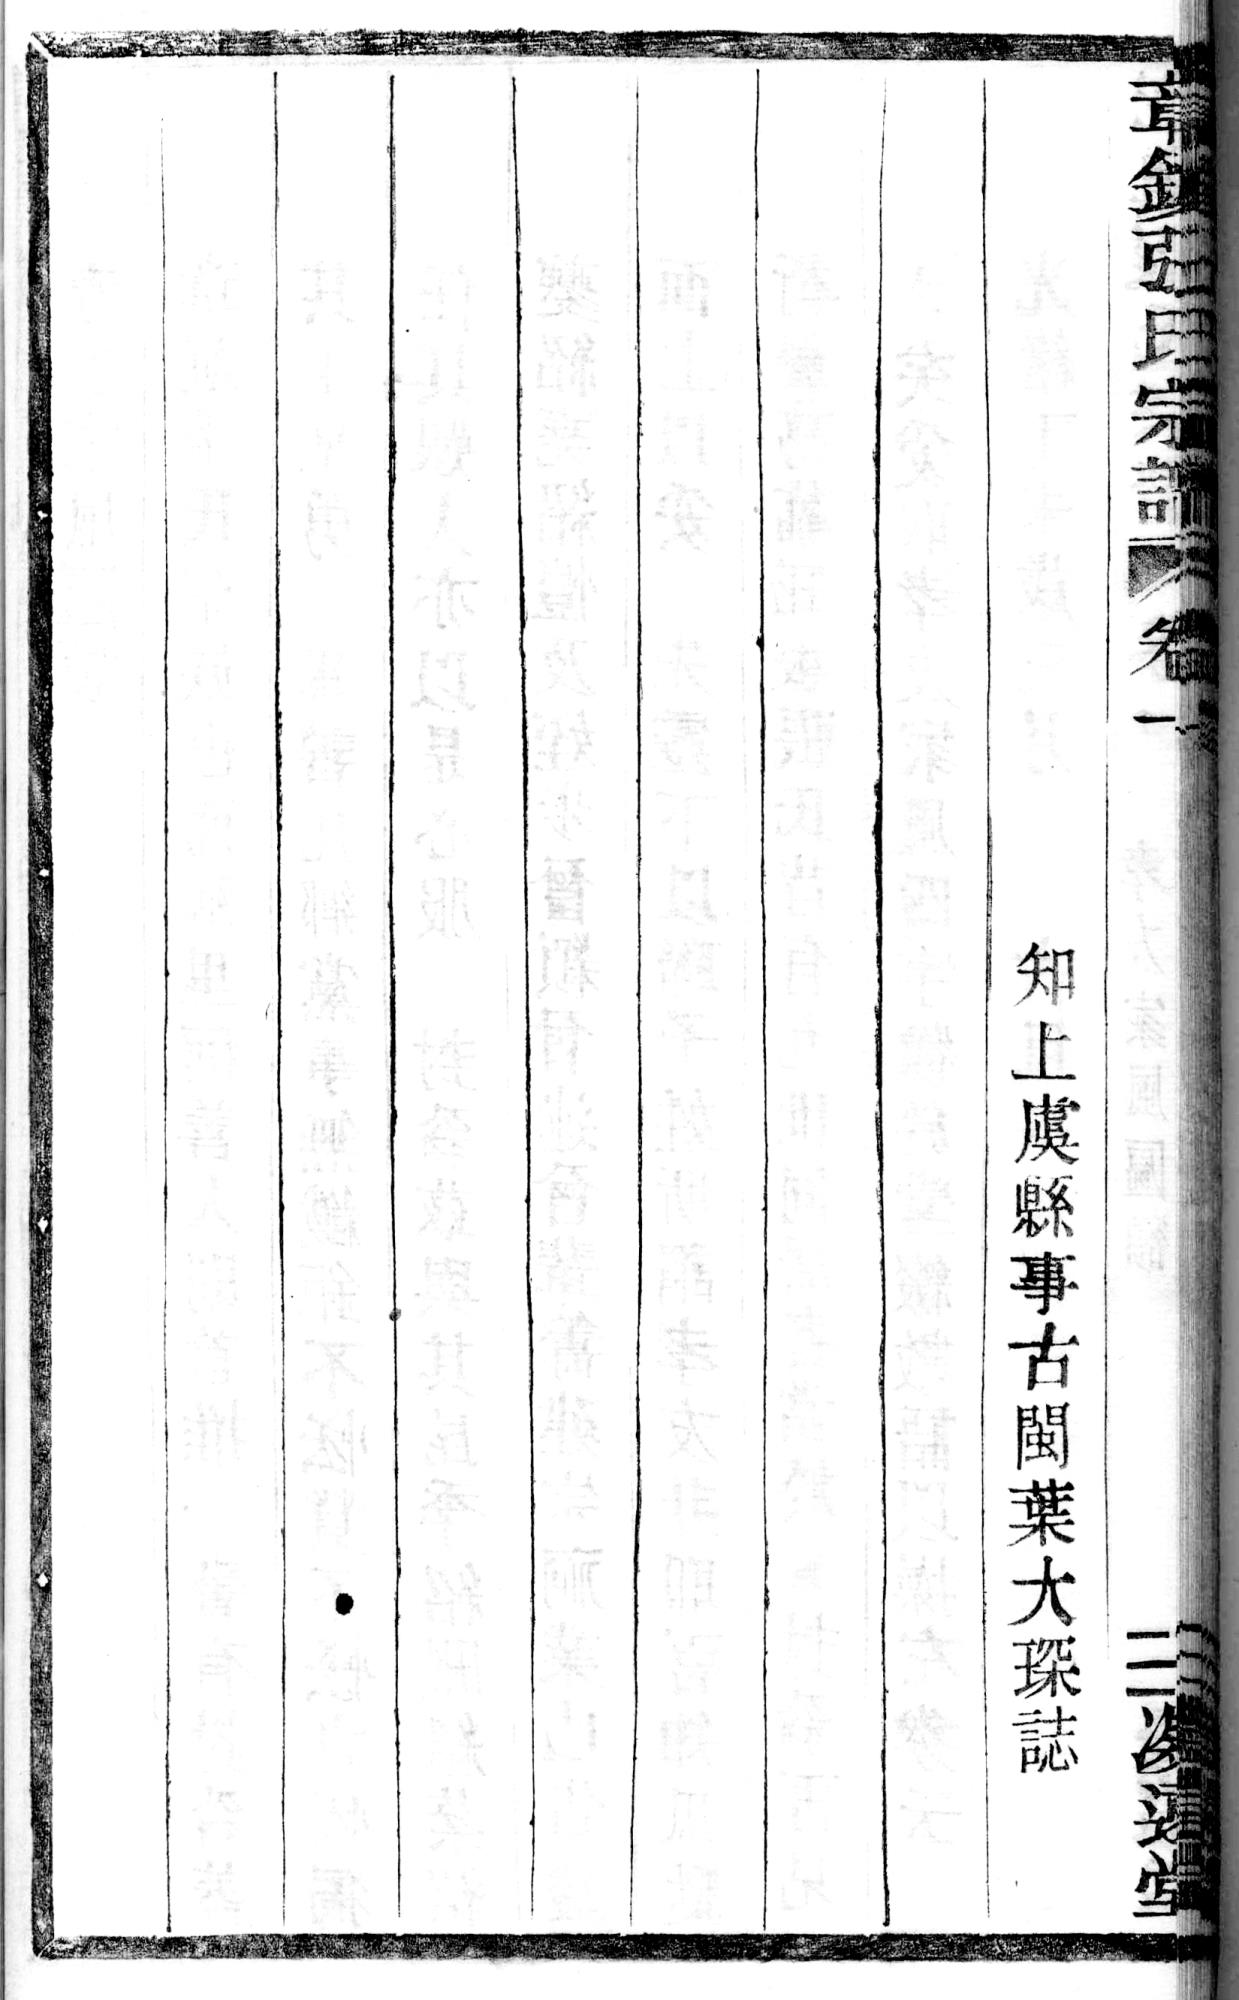 章鎮張氏宗譜 卷一 三 堂
知上虞縣事古閩葉大琛誌